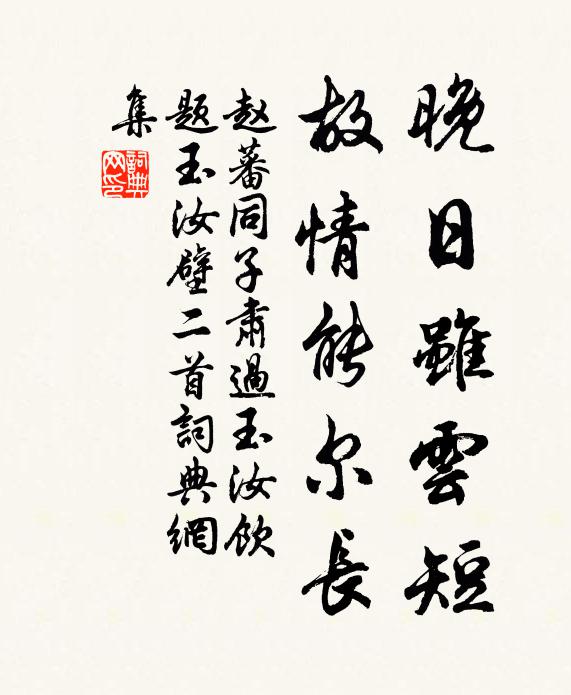 晚日雖雲短
故情能尔長
赵蕃同子肅過玉汝飲
题玉汝壁二首詞典網
集
詞典网印